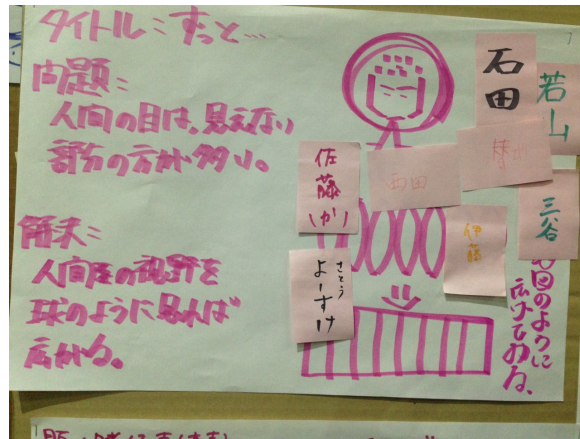 タイトル：ずっと…
問題：
人間の目は、見えない
部分の方が多い。
解決：
人間の視野を
球のように見れば
広がる。
石田
若山
佐藤(か)
西田
三谷
伊藤
さとう
よーすけ
図のように
広げてみる、